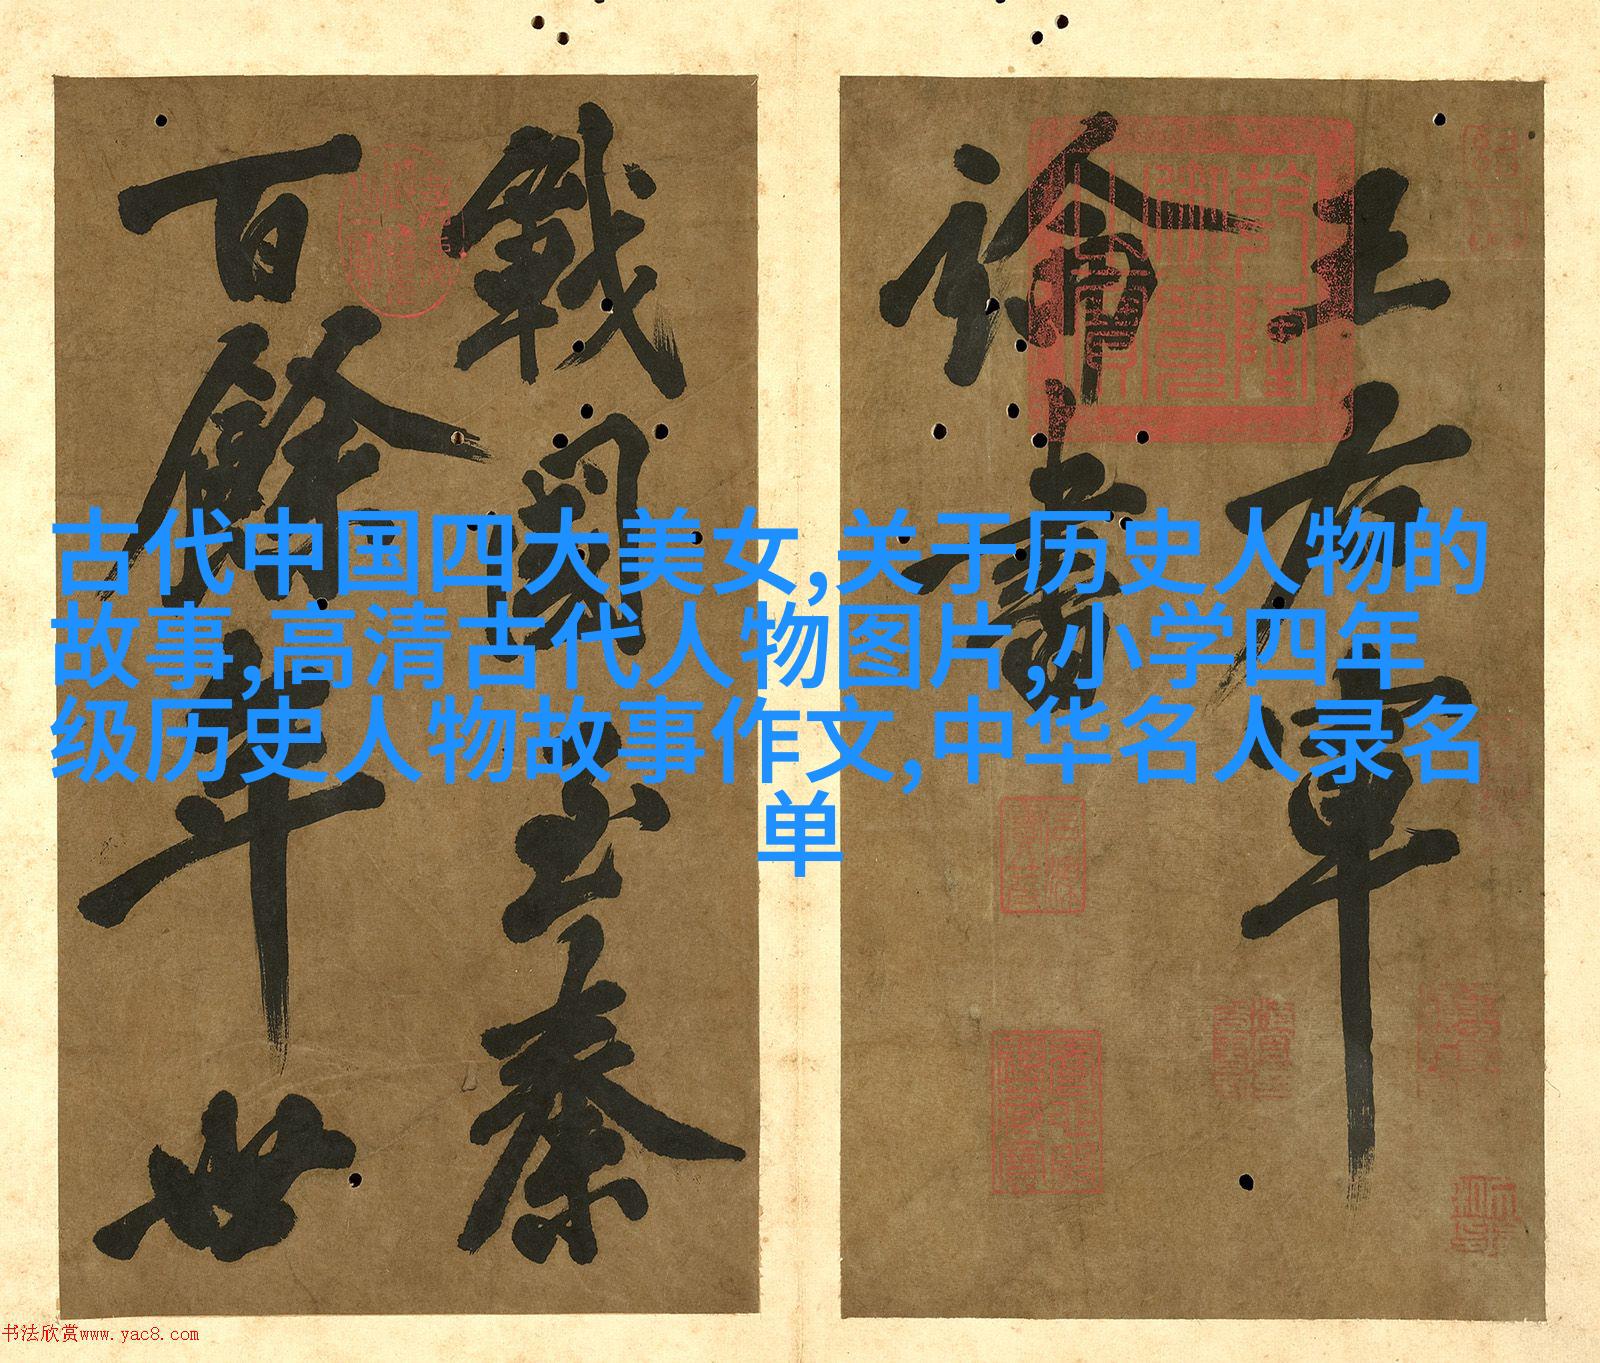 王右軍
論書
戰國至秦
百餘年世
乾隆
御覽
之寶
古代中国四大美女,关于历史人物的
故事,高清古代人物图片,小学四年
级历史人物故事作文,中华名人录名
单
书法欣赏www.yac8.com